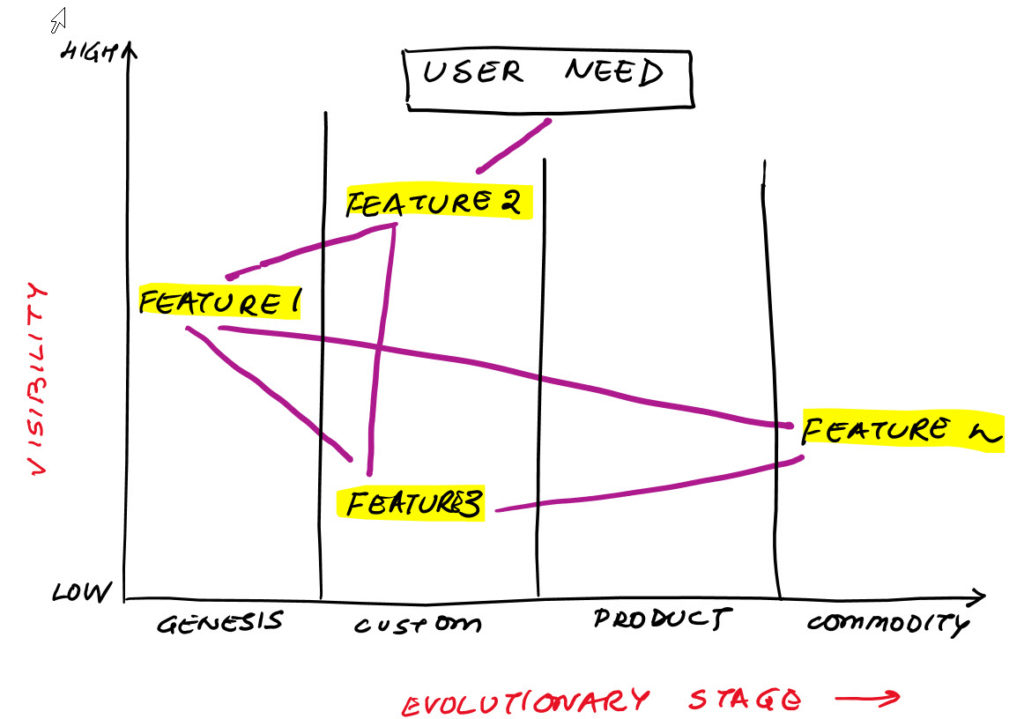 HIGH
USER NEED
FEATURE 2
FEATURE 1
VISIBILITY
FEATURE n
FEATURE3
LOW
GENESIS
CUSTOM
PRODUCT
COMMODITY
EVOLUTIONARY STAGE →